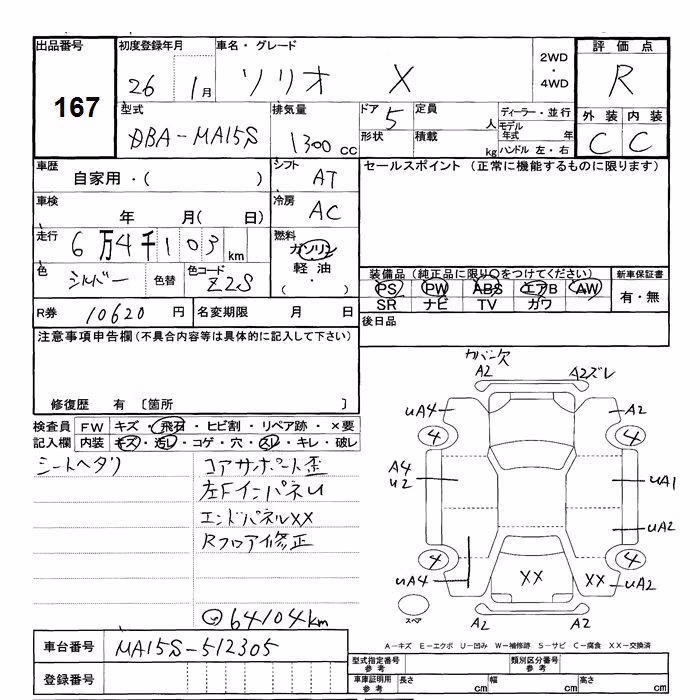 出品番号
初度登録年月
車名・グレード
評価点
167
26 1月
ソリオ X
2WD
・
4WD
R
型式
DBA-MA15S
排気量
1300 cc
ドア 5
定員 人
ディーラー・並行
外装 内装
形状
積載 kg
モデル年式 年
ハンドル 左・右
C C
車歴
自家用・( )
シフト AT
セールスポイント (正常に機能するものに限ります)
車検
年 月( 日)
冷房 AC
走行
6万4千103 km
燃料
ガソリン
軽油
( ・ )
色
シルバー
色替
色コード Z2S
装備品 (純正品に限り○をつけてください)
新車保証書
PS PW ABS エアB AW
有・無
SR ナビ TV カワ
R券 10620 円
名変期限 月 日
後日品
注意事項申告欄(不具合内容等は具体的に記入して下さい)
修復歴 有 〔箇所 〕
検査員 FW キズ・飛石・ヒビ割・リペア跡・×要
記入欄 内装 キズ・汚レ・コゲ・穴・スレ・キレ・破レ
シートヘタリ
コアサポート歪
左FインパネU
エンドパネルXX
Rフロア修正
64104km
カバー欠
A2 A2ズレ
uA4 A2
4 4
A4
u2
uA1
uA2
4 4
uA4 XX XX uA2
スペア
A2 A2
車台番号 MA15S-512305
A-キズ E-エクボ U-凹み W-補修跡 S-サビ C-腐食 XX-交換済
登録番号
型式指定番号 参考
類別区分番号 参考
車庫証明用 参考
長さ cm
幅 cm
高さ cm